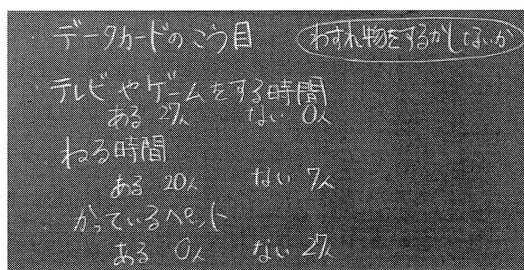 ・データカードのこう目 わすれ物をするかしないか
・テレビやゲームをする時間
ある 27人 ない 0人
・ねる時間
ある 20人 ない 7人
・かっているペット
ある 0人 ない 27人